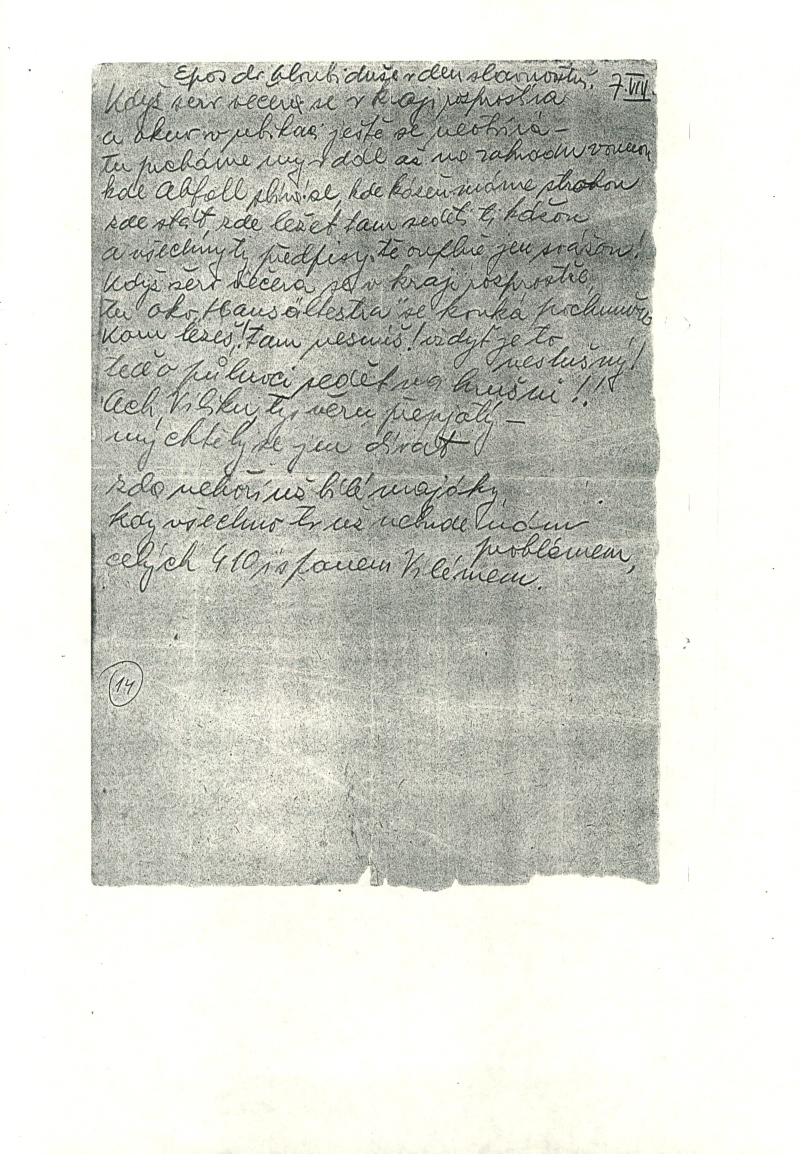 Epos dr. hloubi duše v den slavnostní. 7. VII
Když šero večera se v kraji rozprostírá
a okno v ubikaci ještě se neotvírá –
tu pcháme my v dál až na zahradu vonnou
kde Abfall se, kde kóšer máme stravou
zde stát, zde ležet tam sedět, tj
a všechny ty předpisy, tě jen!
Když šero večera se v kraji rozprostře,
tu oko „Hausältestra“ se kouká pochmuře
Kam lezeš! tam nesmíš! vždyť je to
neslušný!
teď o půlnoci sedět na hrušni!!
Ach Vilíku, ty věru přepjatý –
my chtěly se jen dívat
zda nehoří už bílé majáky,
kdy všechno to už nebude nám
problémem,
celých 410 i s panem Vilémem.
14